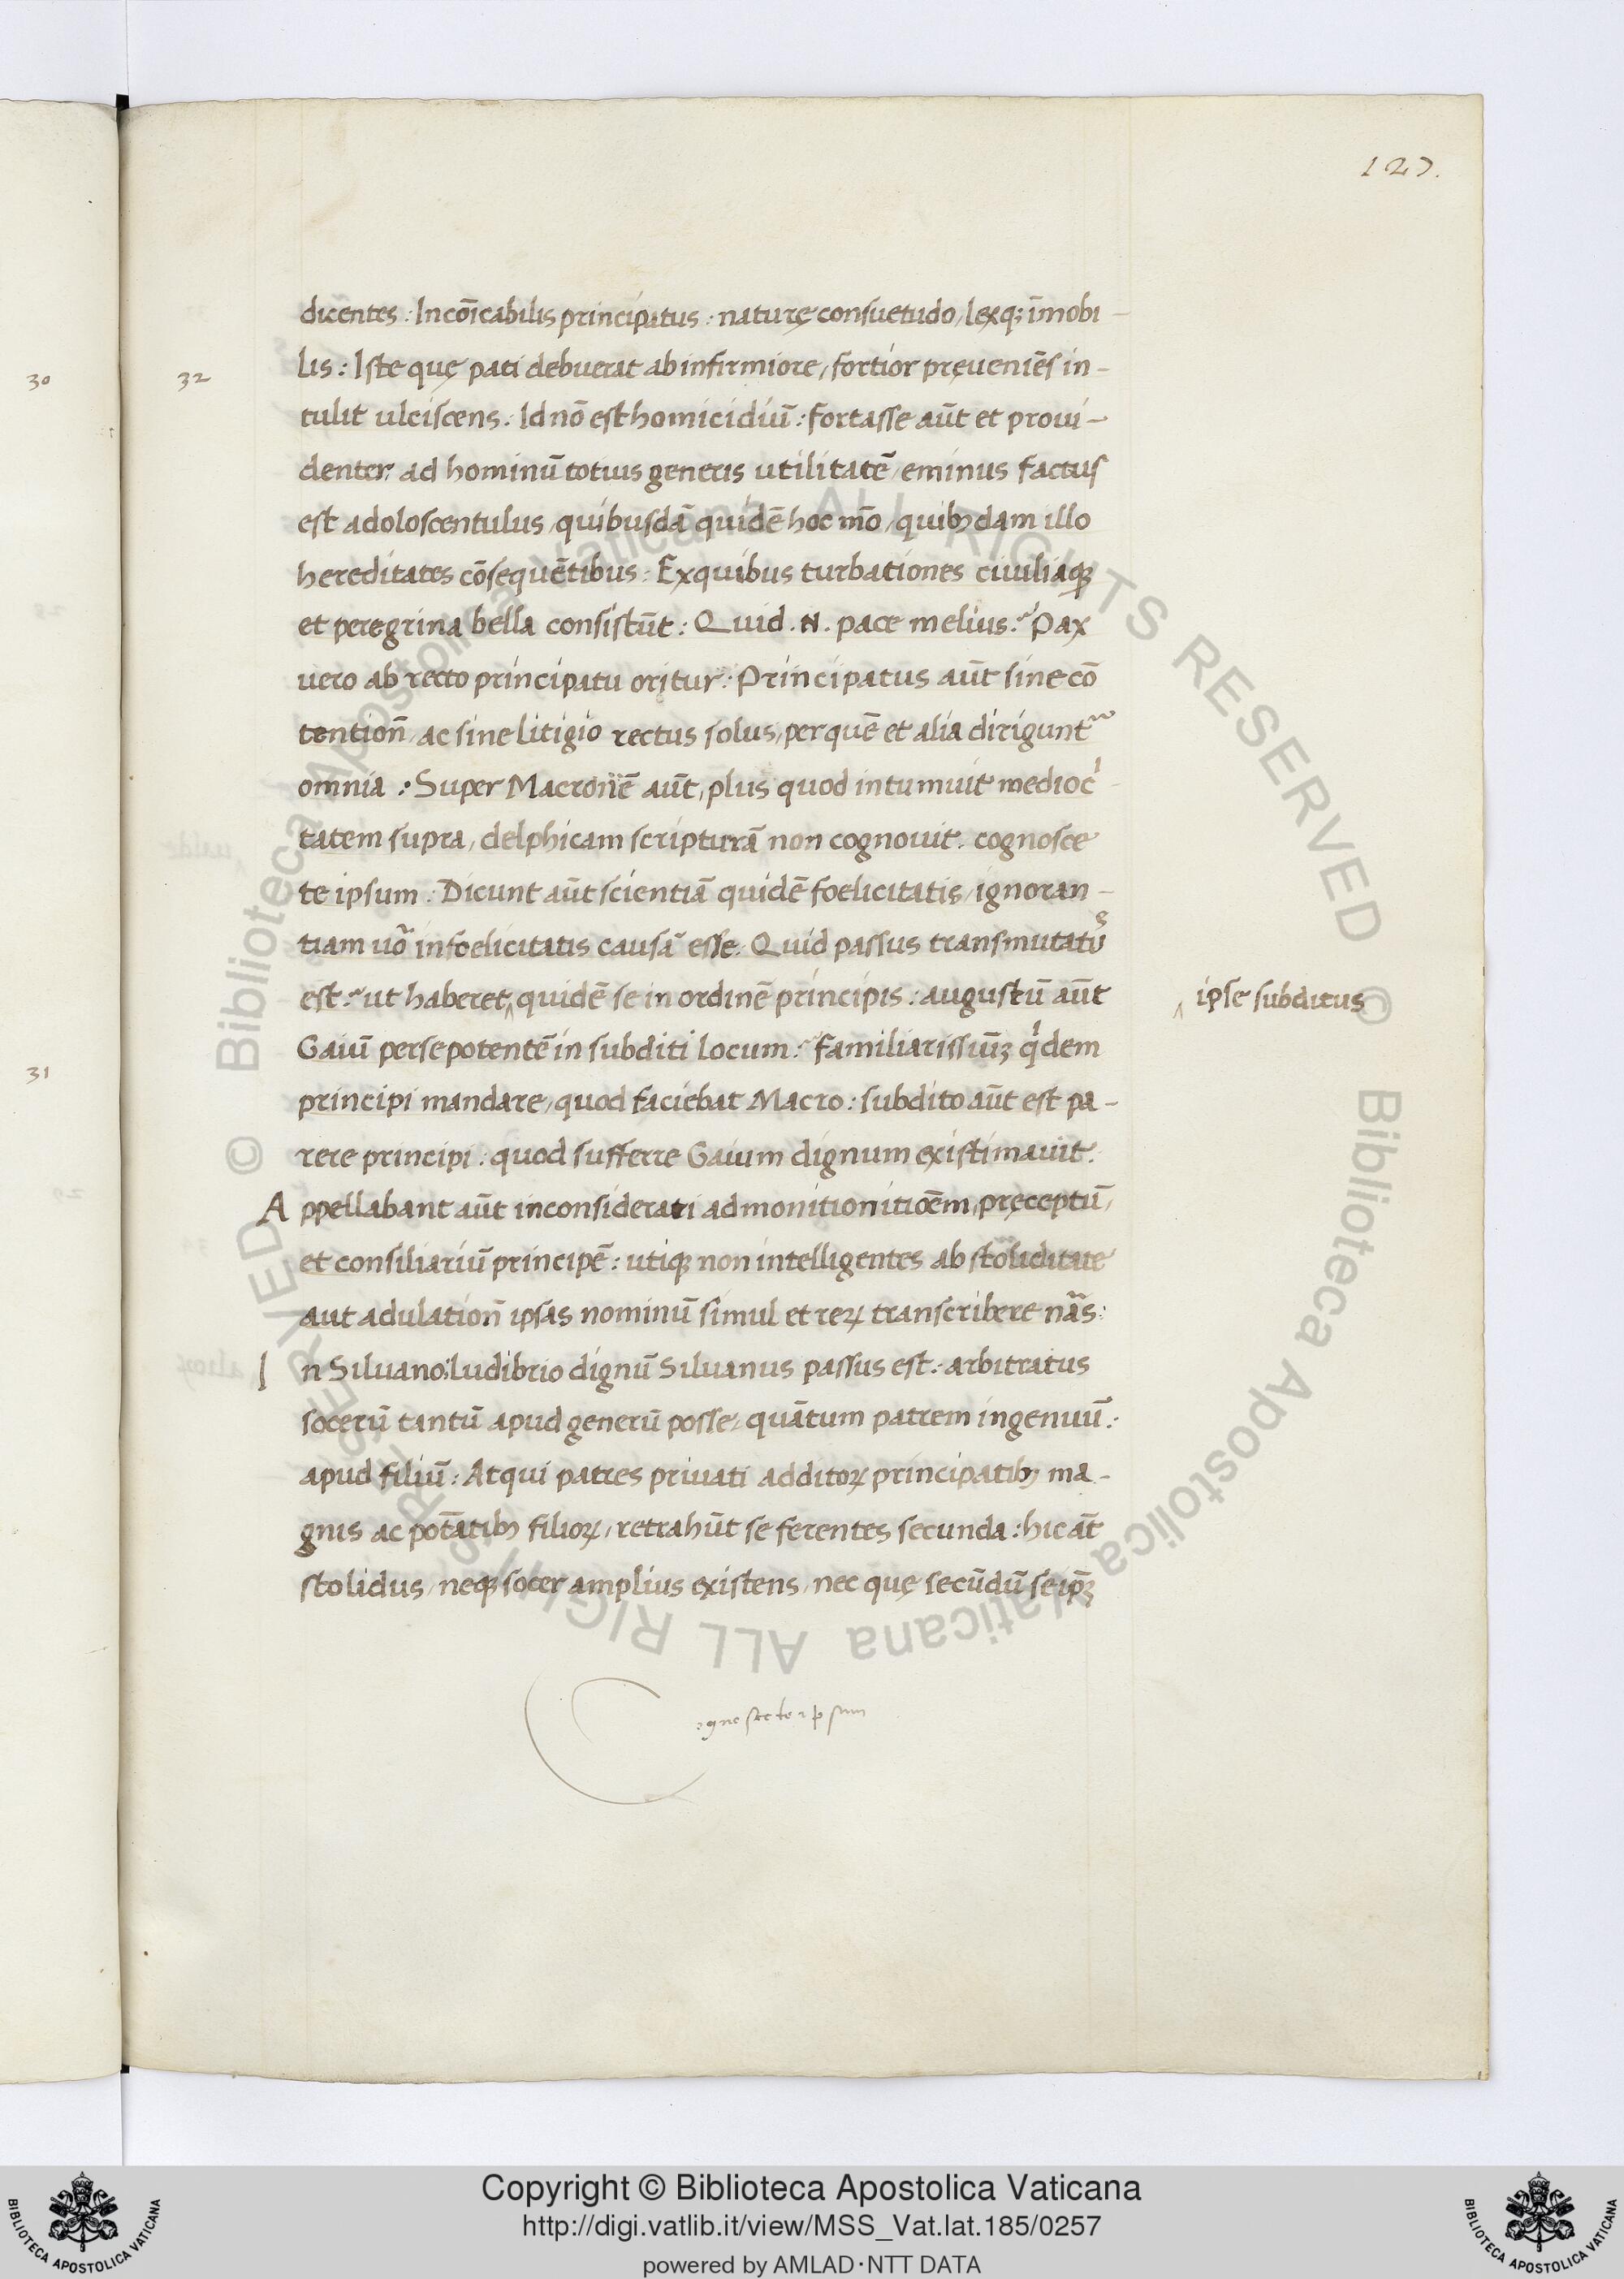 127.
dicentes : Incōicabilis principatus : naturę consuetudo, lexq; īmobi-
30
32
lis : Iste quę pati debuerat ab infirmiore, fortior pręueniēs in-
tulit ulciscens. Id nō est homicidiū : fortasse aūt et proui-
denter ad hominū totius generis utilitatē, eminus factus
est adoloscentulus, quibusdā quidē hoc mō, quibꝫdam illo
hereditates cōsequētibus : Ex quibus turbationes ciuiliaqꝫ
et peregrina bella consistūt : Quid .N. pace melius? Pax
uero ab recto principatu oritur : Principatus aūt sine cō
tentioñ, ac sine litigio rectus solus, per quē et alia dirigunt᷑
omnia : Super Macronē aūt, plus quod intumuit medioc̍
tatem supra, delphicam scripturā non cognouit. cognosce
te ipsum : Dicunt aūt scientiā quidē foelicitatis, ignoran-
tiam uō infoelicitatis causā esse. Quid passus transmutatꝰ
est? ut haberet ^ quidē se in ordinē principis : augustū aūt
^ ipse subditus
Gaiū per se potentē in subditi locum? familiarissiūꝫ qͥdem
31
principi mandare, quod faciebat Macro : subdito aūt est pa-
rere principi : quod sufferre Gaium dignum existimauit.
Appellabant aūt inconsiderati admonitionitiōem, pręceptū,
et consiliariū principē : utiqꝫ non intelligentes ab stoliditate
aut adulatioñ ipsas nominū simul et reꝝ transcribere nāas :
In Siluano: ludibrio dignū Siluanus passus est : arbitratus
socerū tantū apud generū posse, quātum patrem ingenuū :
apud filiū : Atqui patres priuati additoꝝ principatibꝫ ma-
gnis ac potātibꝫ filioꝝ, retrahūt se ferentes secunda : hic āt
stolidus, neqꝫ socer amplius existens, nec quę secūdū se ip̄ꝫ
Cognoscete ipsum
© Biblioteca Apostolica Vaticana ALL RIGHTS RESERVED © Biblioteca Apostolica Vaticana ALL RIGHTS RESERVED
Copyright © Biblioteca Apostolica Vaticana
http://digi.vatlib.it/view/MSS_Vat.lat.185/0257
powered by AMLAD·NTT DATA
BIBLIOTECA APOSTOLICA VATICANA
BIBLIOTECA APOSTOLICA VATICANA